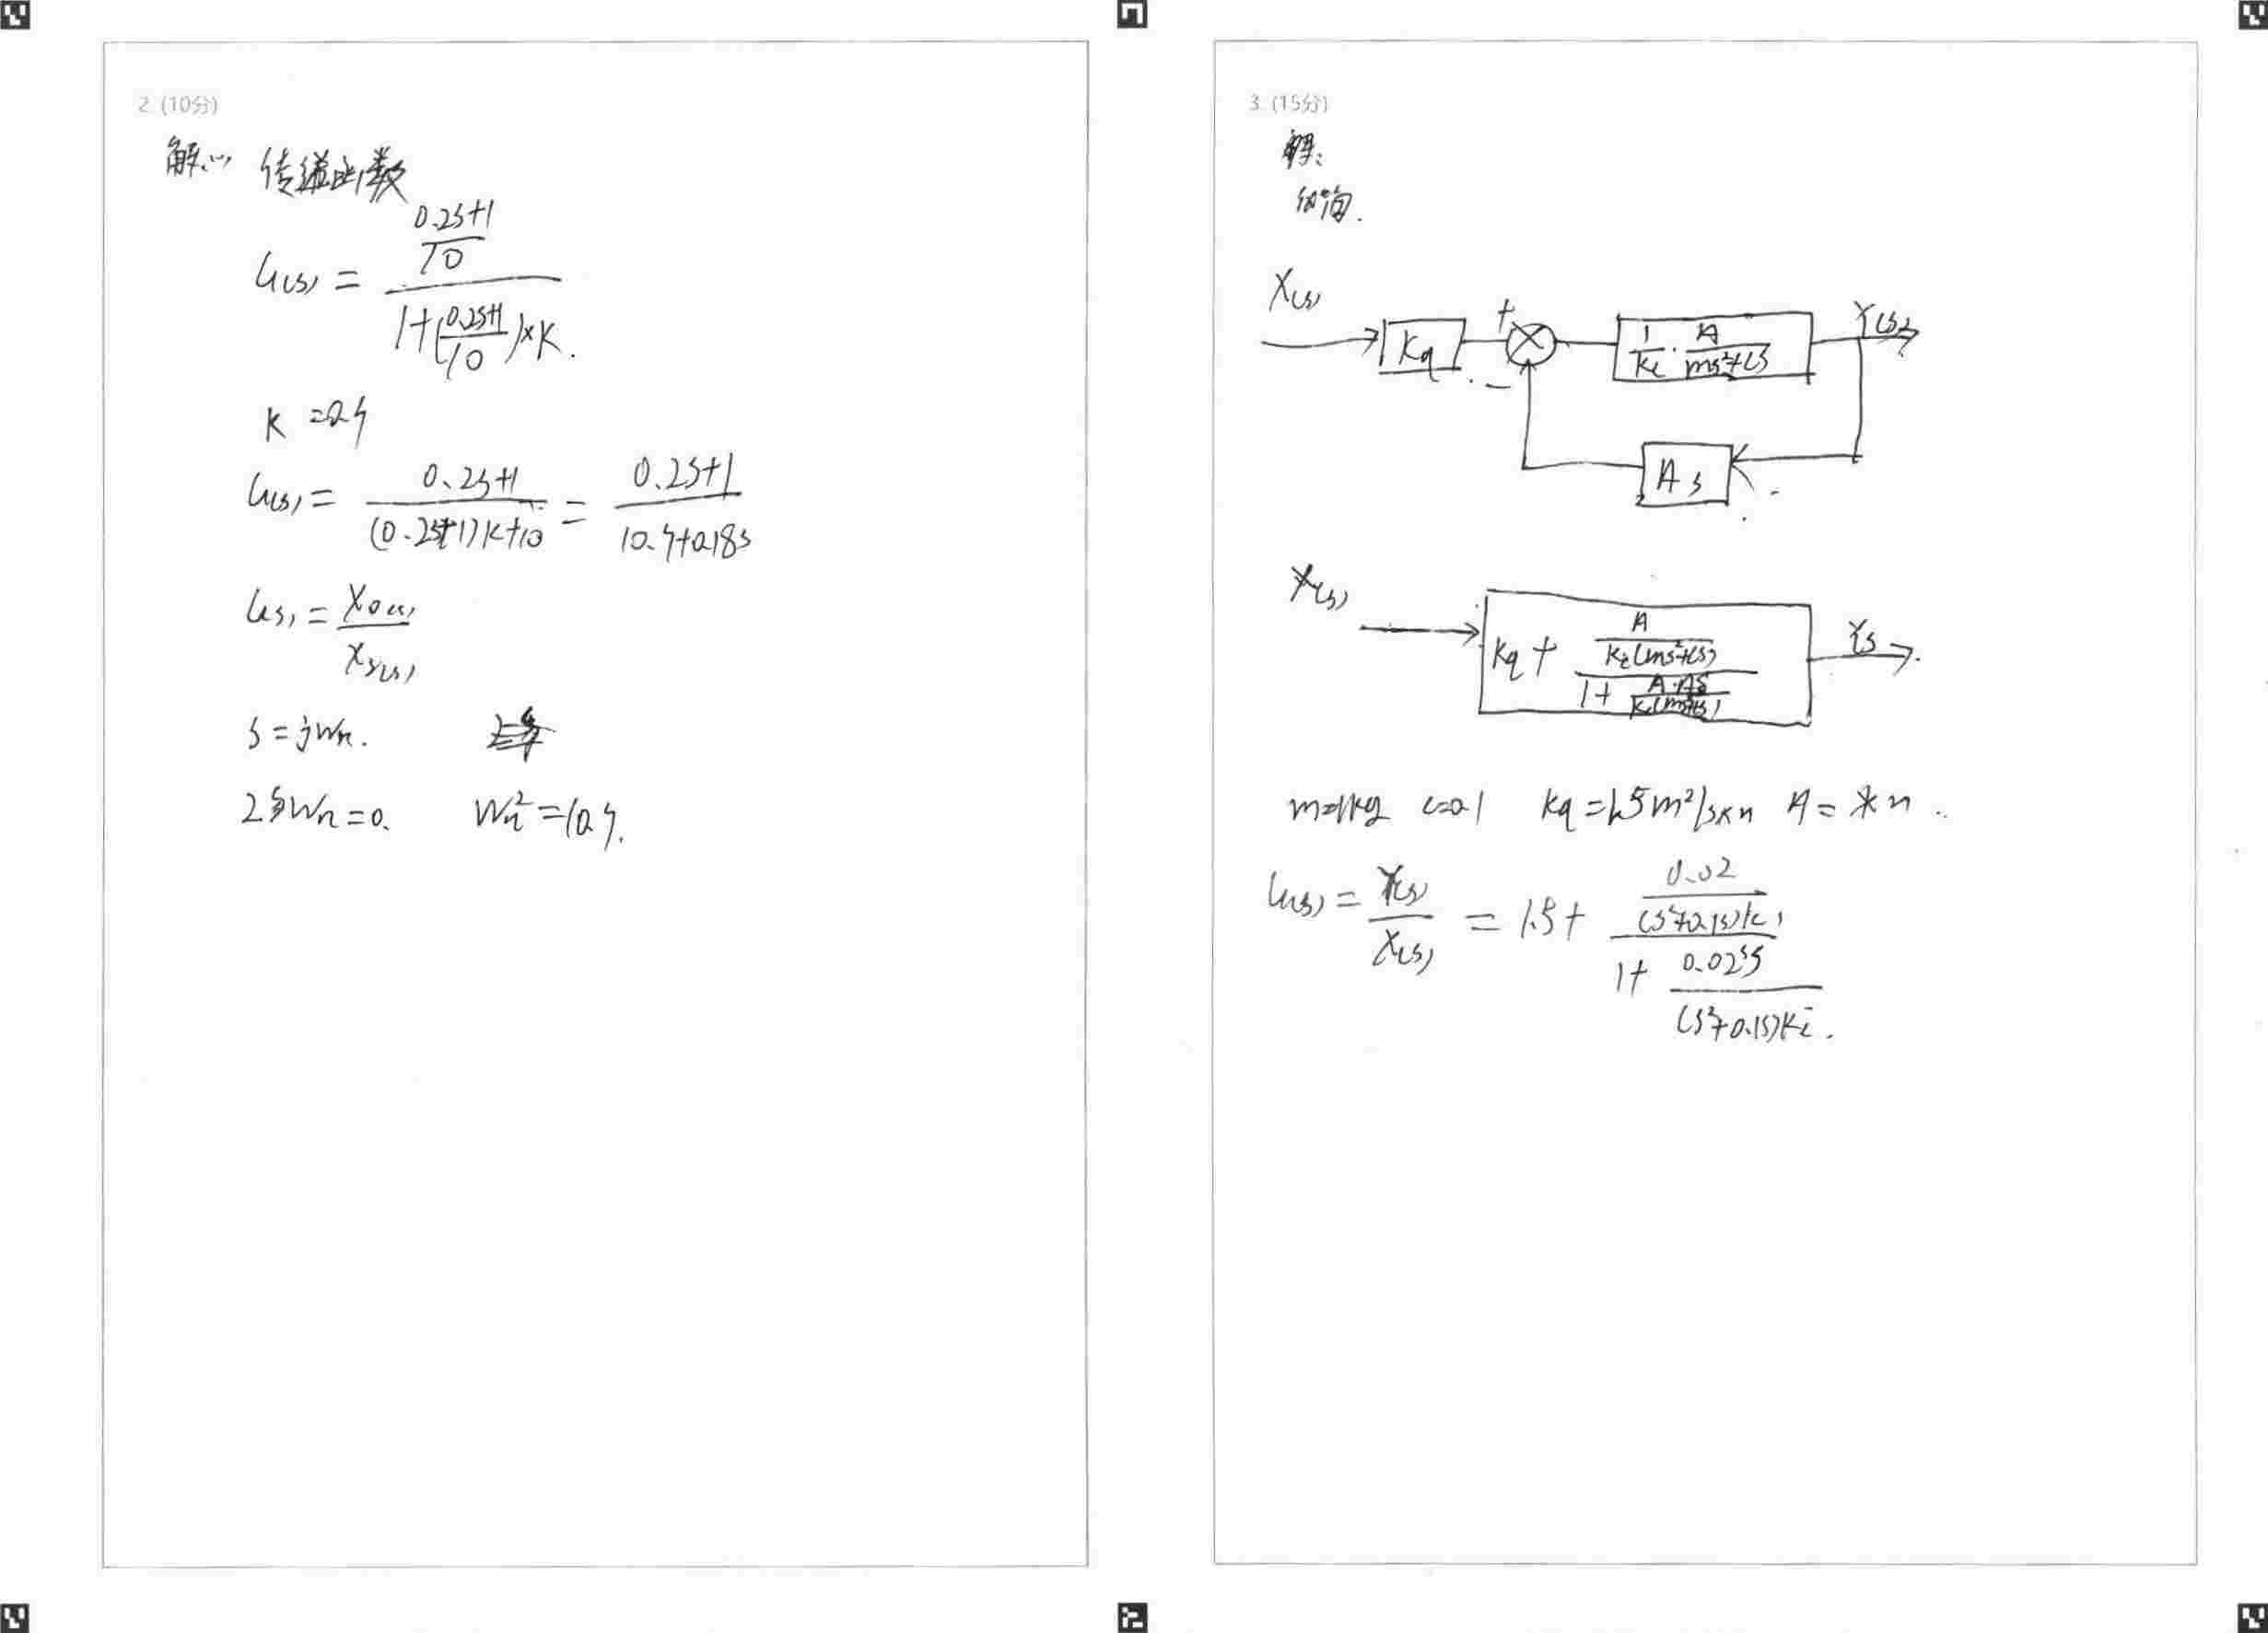 2. (10分)
解:(1) 传递函数
G(s) = \frac{\frac{0.2s+1}{10}}{1+(\frac{0.2s+1}{10})×K}.
K = 0.9
G(s) = \frac{0.2s+1}{(0.2s+1)K+10} = \frac{0.2s+1}{10.9+0.18s}
G(s) = \frac{X_{0(s)}}{X_{i(s)}}
s = jWn.
2ξWn = 0. Wn² = 10.9.
3. (15分)
解:
化简.
X(s)
Kq
+
-
\frac{1}{Ki}·\frac{A}{ms²+cs}
Y(s)
As
X(s)
Kq + \frac{\frac{A}{Ki(ms²+cs)}}{1+\frac{A·As}{Ki(ms²+cs)}}
Ys
m=1kg c=0.1 Kq=1.5m²/s
G(s) = \frac{Y(s)}{X(s)} = 1.5 + \frac{\frac{0.02}{(s²+0.1s)Ki}}{1+\frac{0.02²s}{(s²+0.1s)Ki}}.